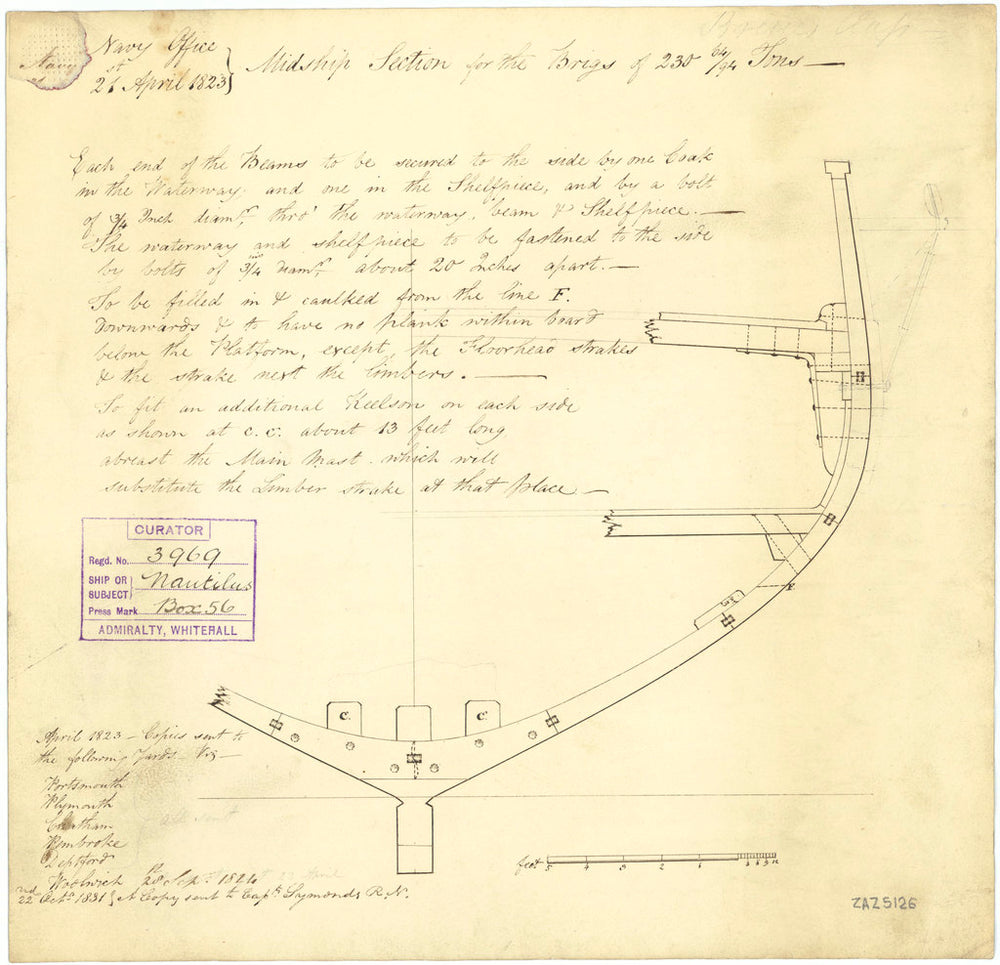 Navy Office
21st April 1823
Midship Section for the Brigs of 230 64/94 Tons —
Each end of the Beams to be secured to the side by one Coak
in the Waterway, and one in the Shelfpiece, and by a bolt
of 3/4 Inch diamr. thro' the waterway, beam & Shelfpiece. —
The waterway and shelfpiece to be fastened to the side
by bolts of 3/4 diamr. about 20 Inches apart. —
To be filled in & caulked from the line F.
Downwards & to have no plank within board
below the Platform, except, the Floorhead strakes
& the strake next the limbers. —
To fit an additional Keelson on each side
as shown at C.C. about 13 feet long,
abreast the Main Mast. which will
substitute the Limber strake at that place —
CURATOR
Regd. No. 3969
SHIP OR SUBJECT} Nautilus
Press Mark Box 56
ADMIRALTY, WHITEHALL
F
C.
C.
April 1823 — Copies sent to
the following Yards Viz —
Portsmouth
Plymouth
Chatham
Pembroke
Deptford
Woolwich 28th Sepr. 1824
22nd Octr. 1831} A Copy sent to Capt. Symonds R.N.
feet 5 4 3 2 1
ZAZ5126